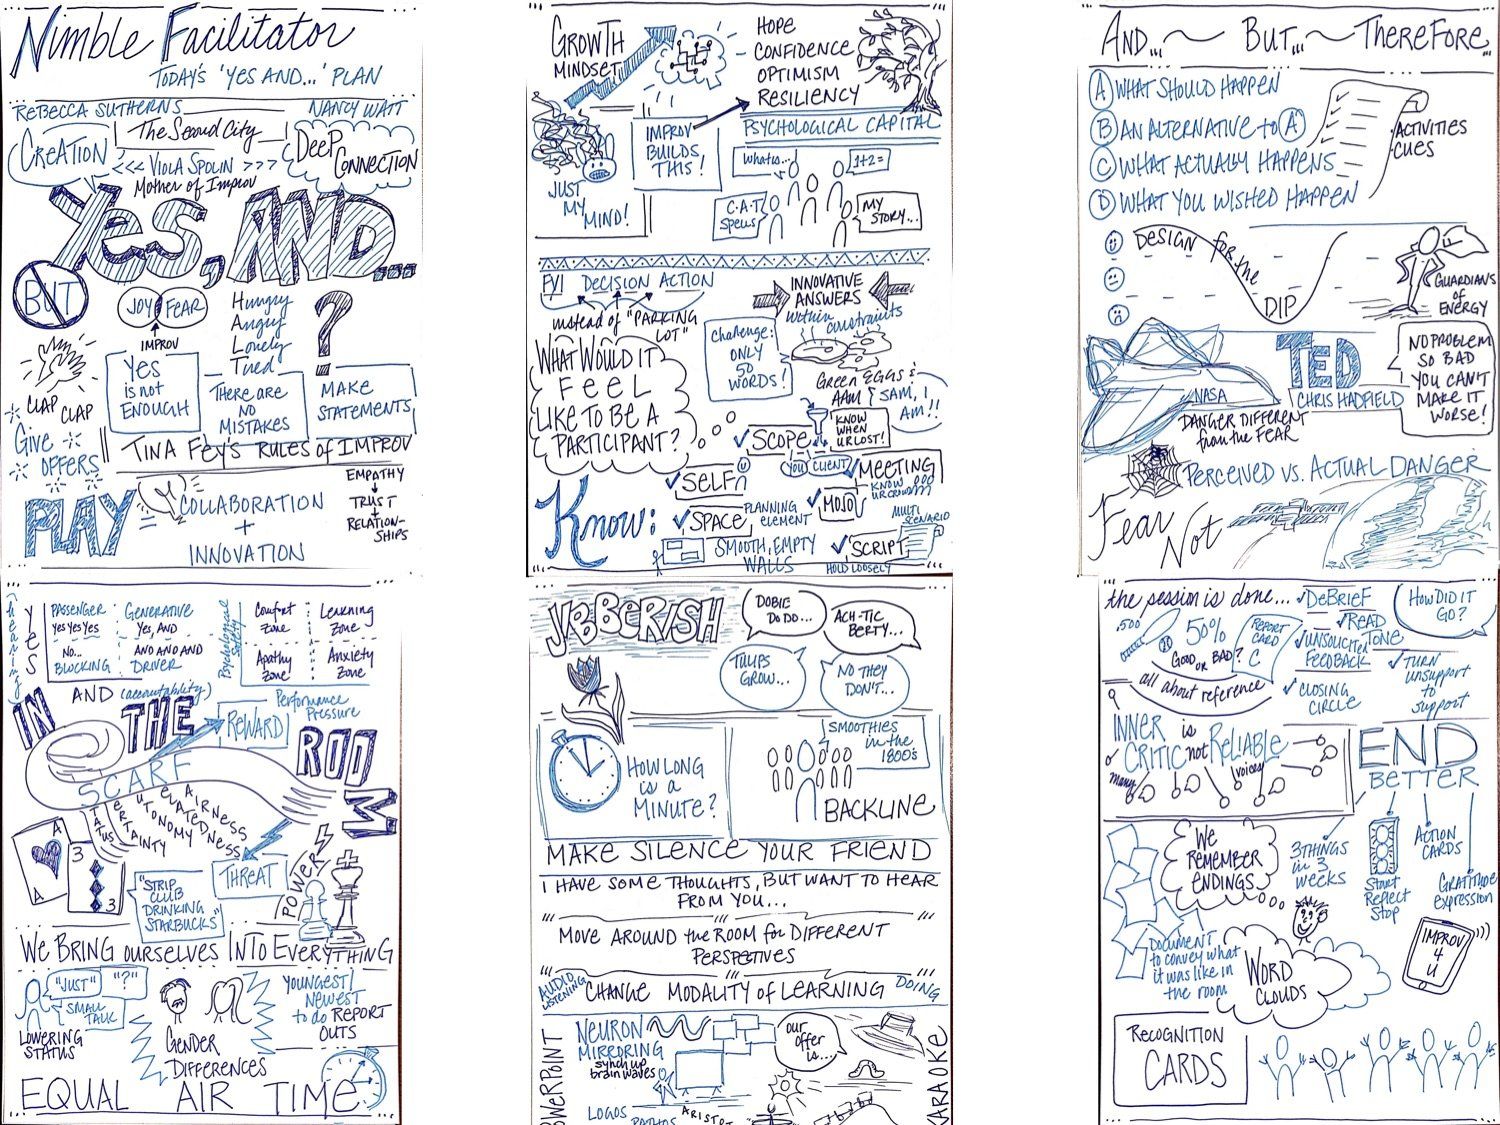 Nimble Facilitator
TODAY'S 'YES AND...' PLAN
REBECCA SUTHERNS
NANCY WATT
CREATION
The Second City
<<< VIOLA SPOLIN >>>
Mother of Improv
DEEP CONNECTION
YES, AND...
BUT
JOY FEAR
IMPROV
Hungry
Angry
Lonely
Tired
?
CLAP CLAP
Give OFFERS
Yes
is not
ENOUGH
THERE ARE
NO
MISTAKES
MAKE
STATEMENTS
TINA FEY'S RULES of IMPROV
PLAY
=
COLLABORATION
+
INNOVATION
EMPATHY
TRUST
+
RELATION-
SHIPS
GROWTH
MINDSET
HOPE
CONFIDENCE
OPTIMISM
RESILIENCY
PSYCHOLOGICAL CAPITAL
IMPROV
BUILDS
THIS!
JUST
MY
MIND!
What is...
1+2=
C.A.T
Spells
MY
STORY...
FYI DECISION ACTION
instead of "PARKING
LOT"
INNOVATIVE
ANSWERS
within constraints
WHAT WOULD IT
FEEL
LIKE TO BE A
PARTICIPANT?
Challenge:
ONLY
50
WORDS!
GREEN EGGS &
HAM
SAM, I
AM!!
Know:
SCOPE
YOU CLIENT
KNOW
WHEN
UR LOST!
SELF
MEETING
KNOW
UR CROWD
MOJO
SPACE
PLANNING
ELEMENT
SMOOTH, EMPTY
WALLS
MULTI
SCENARIO
SCRIPT
HOLD LOOSELY
AND...~ BUT...~ THEREFORE...
A WHAT SHOULD HAPPEN
B AN ALTERNATIVE TO 'A'
C WHAT ACTUALLY HAPPENS
D WHAT YOU WISHED HAPPEN
ACTIVITIES
CUES
DESIGN for the DIP
GUARDIANS
of
ENERGY
NASA
TED
CHRIS HADFIELD
NO PROBLEM
SO BAD
YOU CAN'T
MAKE IT
WORSE!
DANGER DIFFERENT
from the FEAR
PERCEIVED VS. ACTUAL DANGER
Fear Not
YES
PASSENGER
yes yes yes
GENERATIVE
Yes, AND
NO...
BLOCKING
AND AND AND
DRIVER
Psychological
Safety
Comfort
Zone
Learning
Zone
Apathy
Zone
Anxiety
Zone
AND (accountability)
Performance
Pressure
IN THE ROOM
REWARD
SCARF
STATUS
CERTAINTY
AUTONOMY
RELATEDNESS
FAIRNESS
THREAT
POWER
A
A
3
3
"STRIP
CLUB
DRINKING
STARBUCKS"
WE BRING OURSELVES INTO EVERYTHING
"JUST"
"?"
SMALL
TALK
LOWERING
STATUS
GENDER
DIFFERENCES
YOUNGEST/
NEWEST
to do REPORT
OUTS
EQUAL AIR TIME
JIBBERISH
DOBIE
DO DO...
ACH-TIC
BERTY...
TULIPS
GROW...
NO THEY
DON'T...
HOW LONG
is a
MINUTE?
SMOOTHIES
in the
1800's
BACKLINE
MAKE SILENCE YOUR FRIEND
I HAVE SOME THOUGHTS, BUT WANT TO HEAR
FROM YOU...
MOVE AROUND the ROOM for DIFFERENT
PERSPECTIVES
AUDIO
LISTENING
CHANGE MODALITY of LEARNING
DOING
POWERPOINT
NEURON
MIRRORING
synch up
brain waves
our
offer
is...
KARAOKE
LOGOS
PATHOS
ARISTOT
the session is done...
DEBRIEF
HOW DID IT
GO?
.500
50%
GOOD or BAD?
REPORT
CARD
C
all about reference
READ
TONE
UNSOLICITED
FEEDBACK
TURN
unsupport
to
support
CLOSING
CIRCLE
INNER is
CRITIC not RELIABLE
many
voices
END
BETTER
We
REMEMBER
ENDINGS
3 THINGS
in 3
weeks
Start
Reflect
Stop
ACTION
CARDS
GRATITUDE
expression
DOCUMENT
to convey what
it was like in
the room
WORD
CLOUDS
IMPROV
4
U
RECOGNITION
CARDS